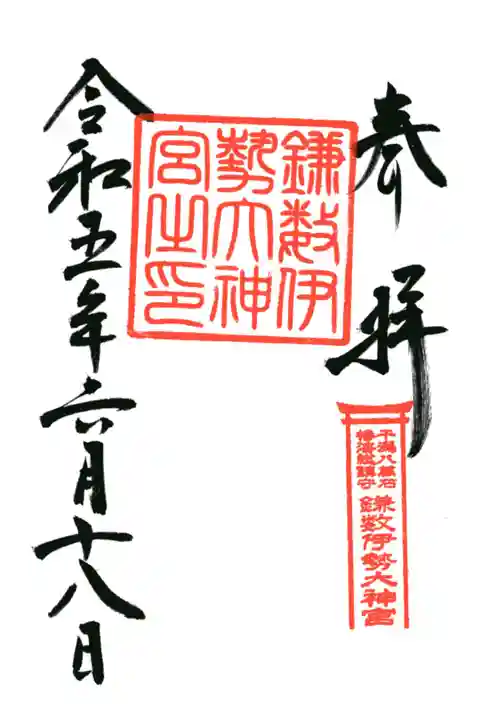 奉拝
干潟八萬石
椿海総鎮守
鎌数伊勢大神宮
鎌数伊
勢大神
宮之印
令和五年六月十八日